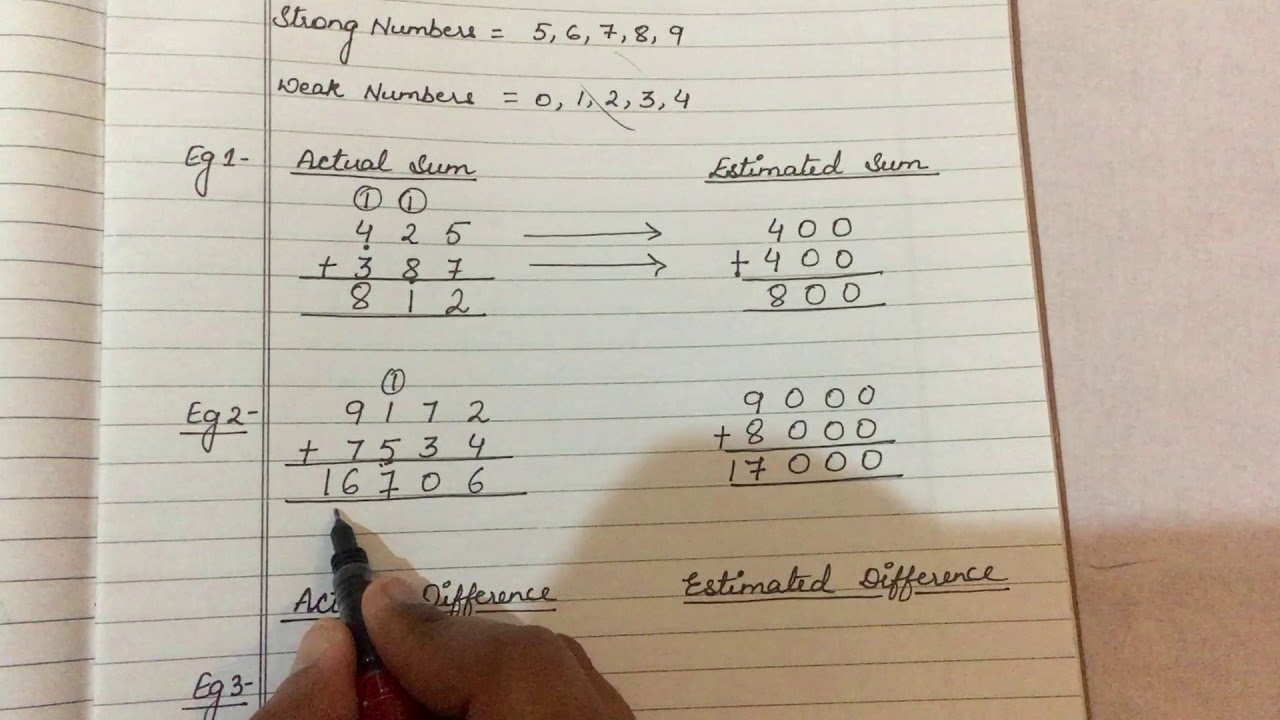 Strong Numbers = 5, 6, 7, 8, 9
Weak Numbers = 0, 1, 2, 3, 4
Eg 1- Actual Sum Estimated Sum
1 1
4 2 5 → 4 0 0
+ 3 8 7 → + 4 0 0
8 1 2 8 0 0
1
Eg 2- 9 1 7 2 9 0 0 0
+ 7 5 3 4 + 8 0 0 0
1 6 7 0 6 1 7 0 0 0
Difference Estimated Difference
Eg 3-